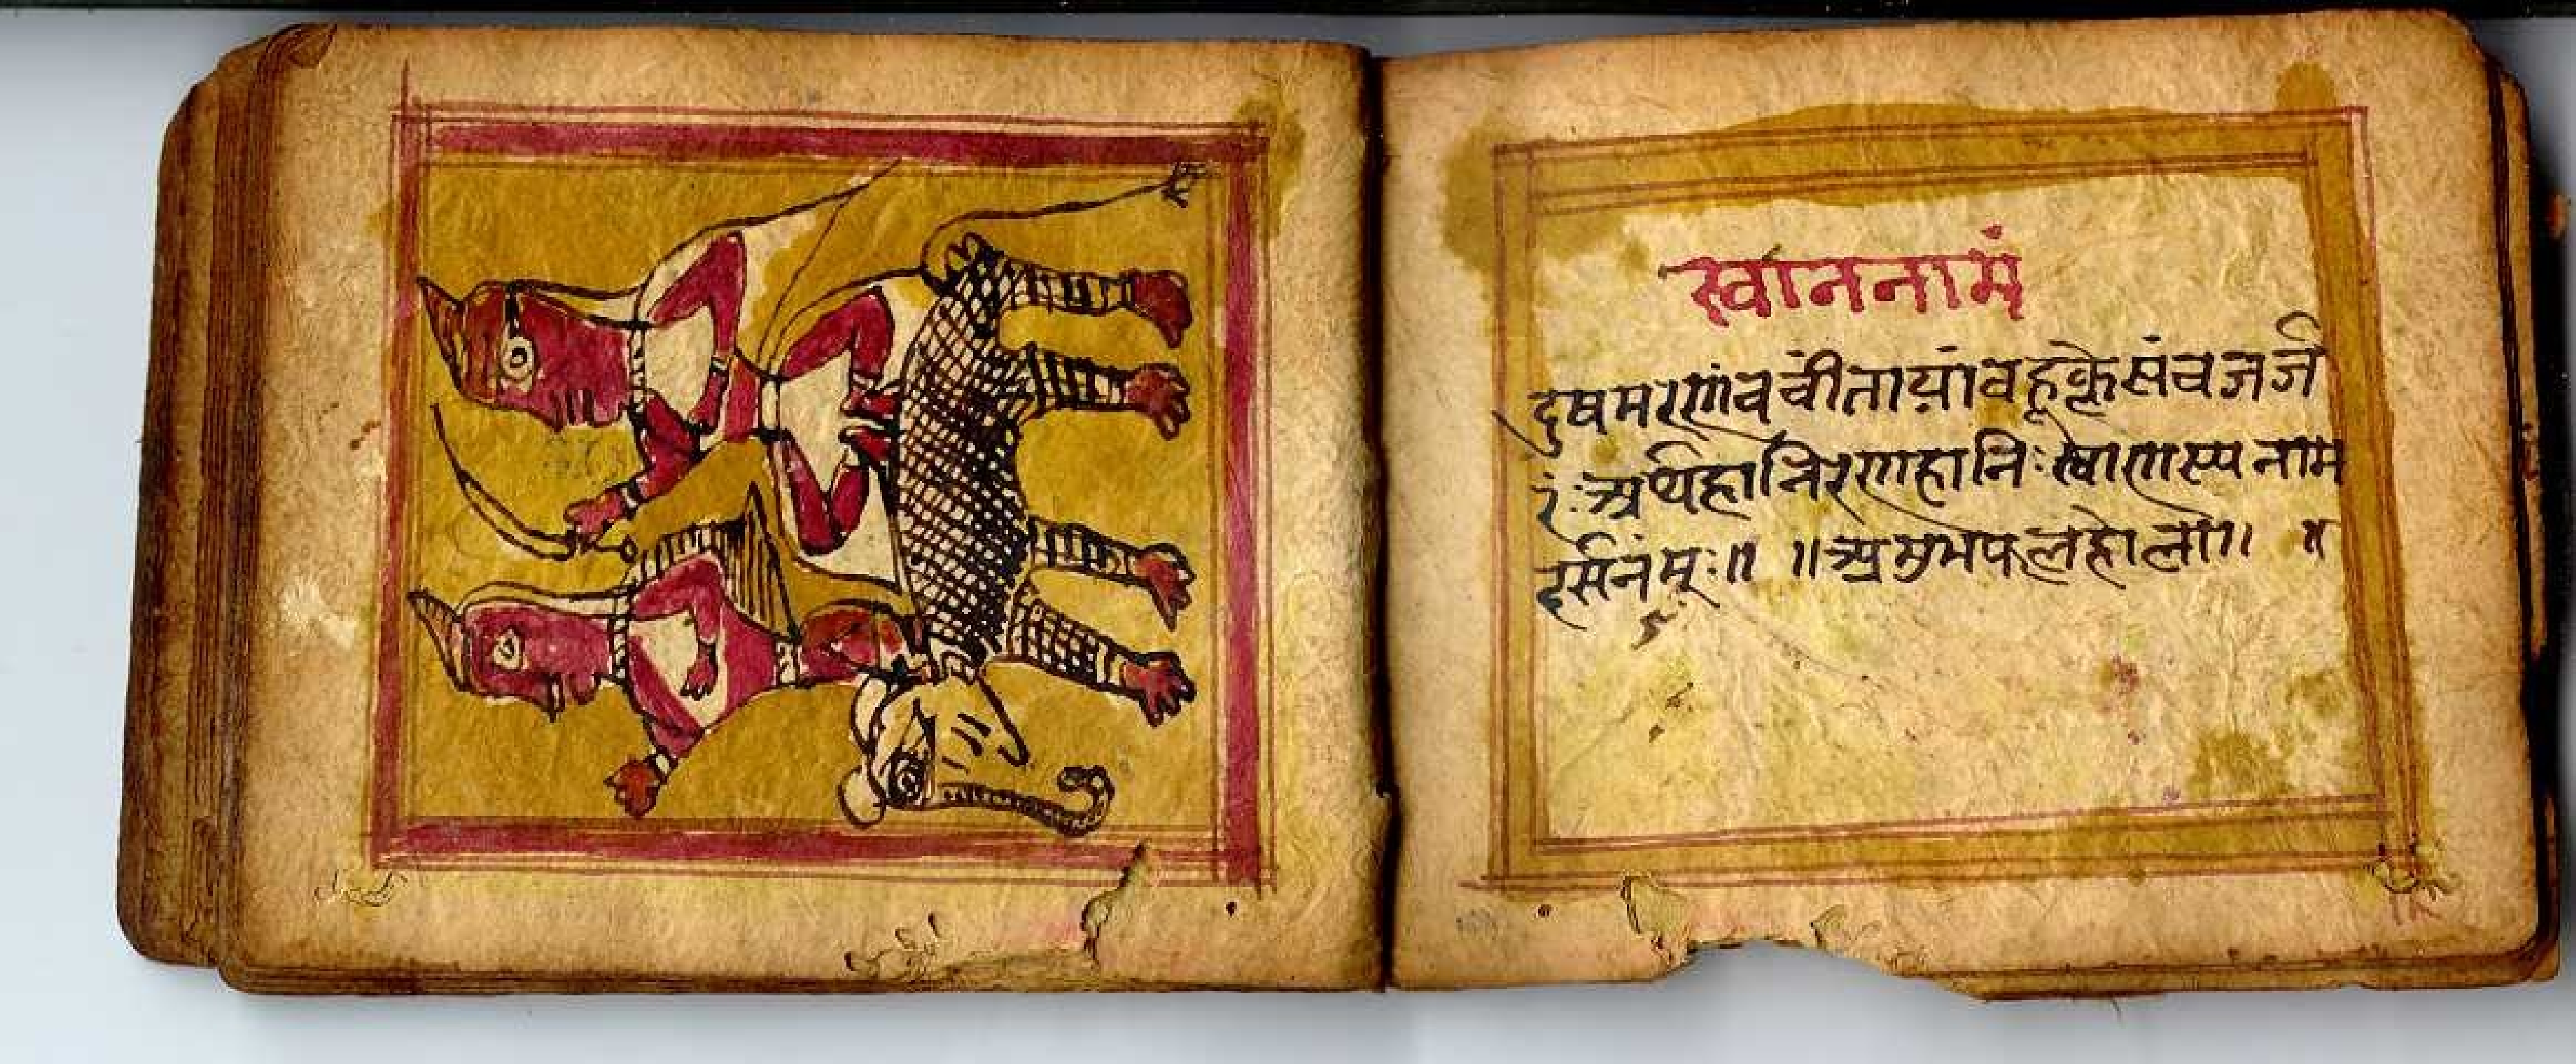 स्वाननामं
दुषमरणंवचींतायांवहूक्लेसंचजर्ज
रंःअर्थहानिरणहानिःस्वाणस्यनाम
दर्सनंमूः॥ ॥असुभफलहोला॥ ॥